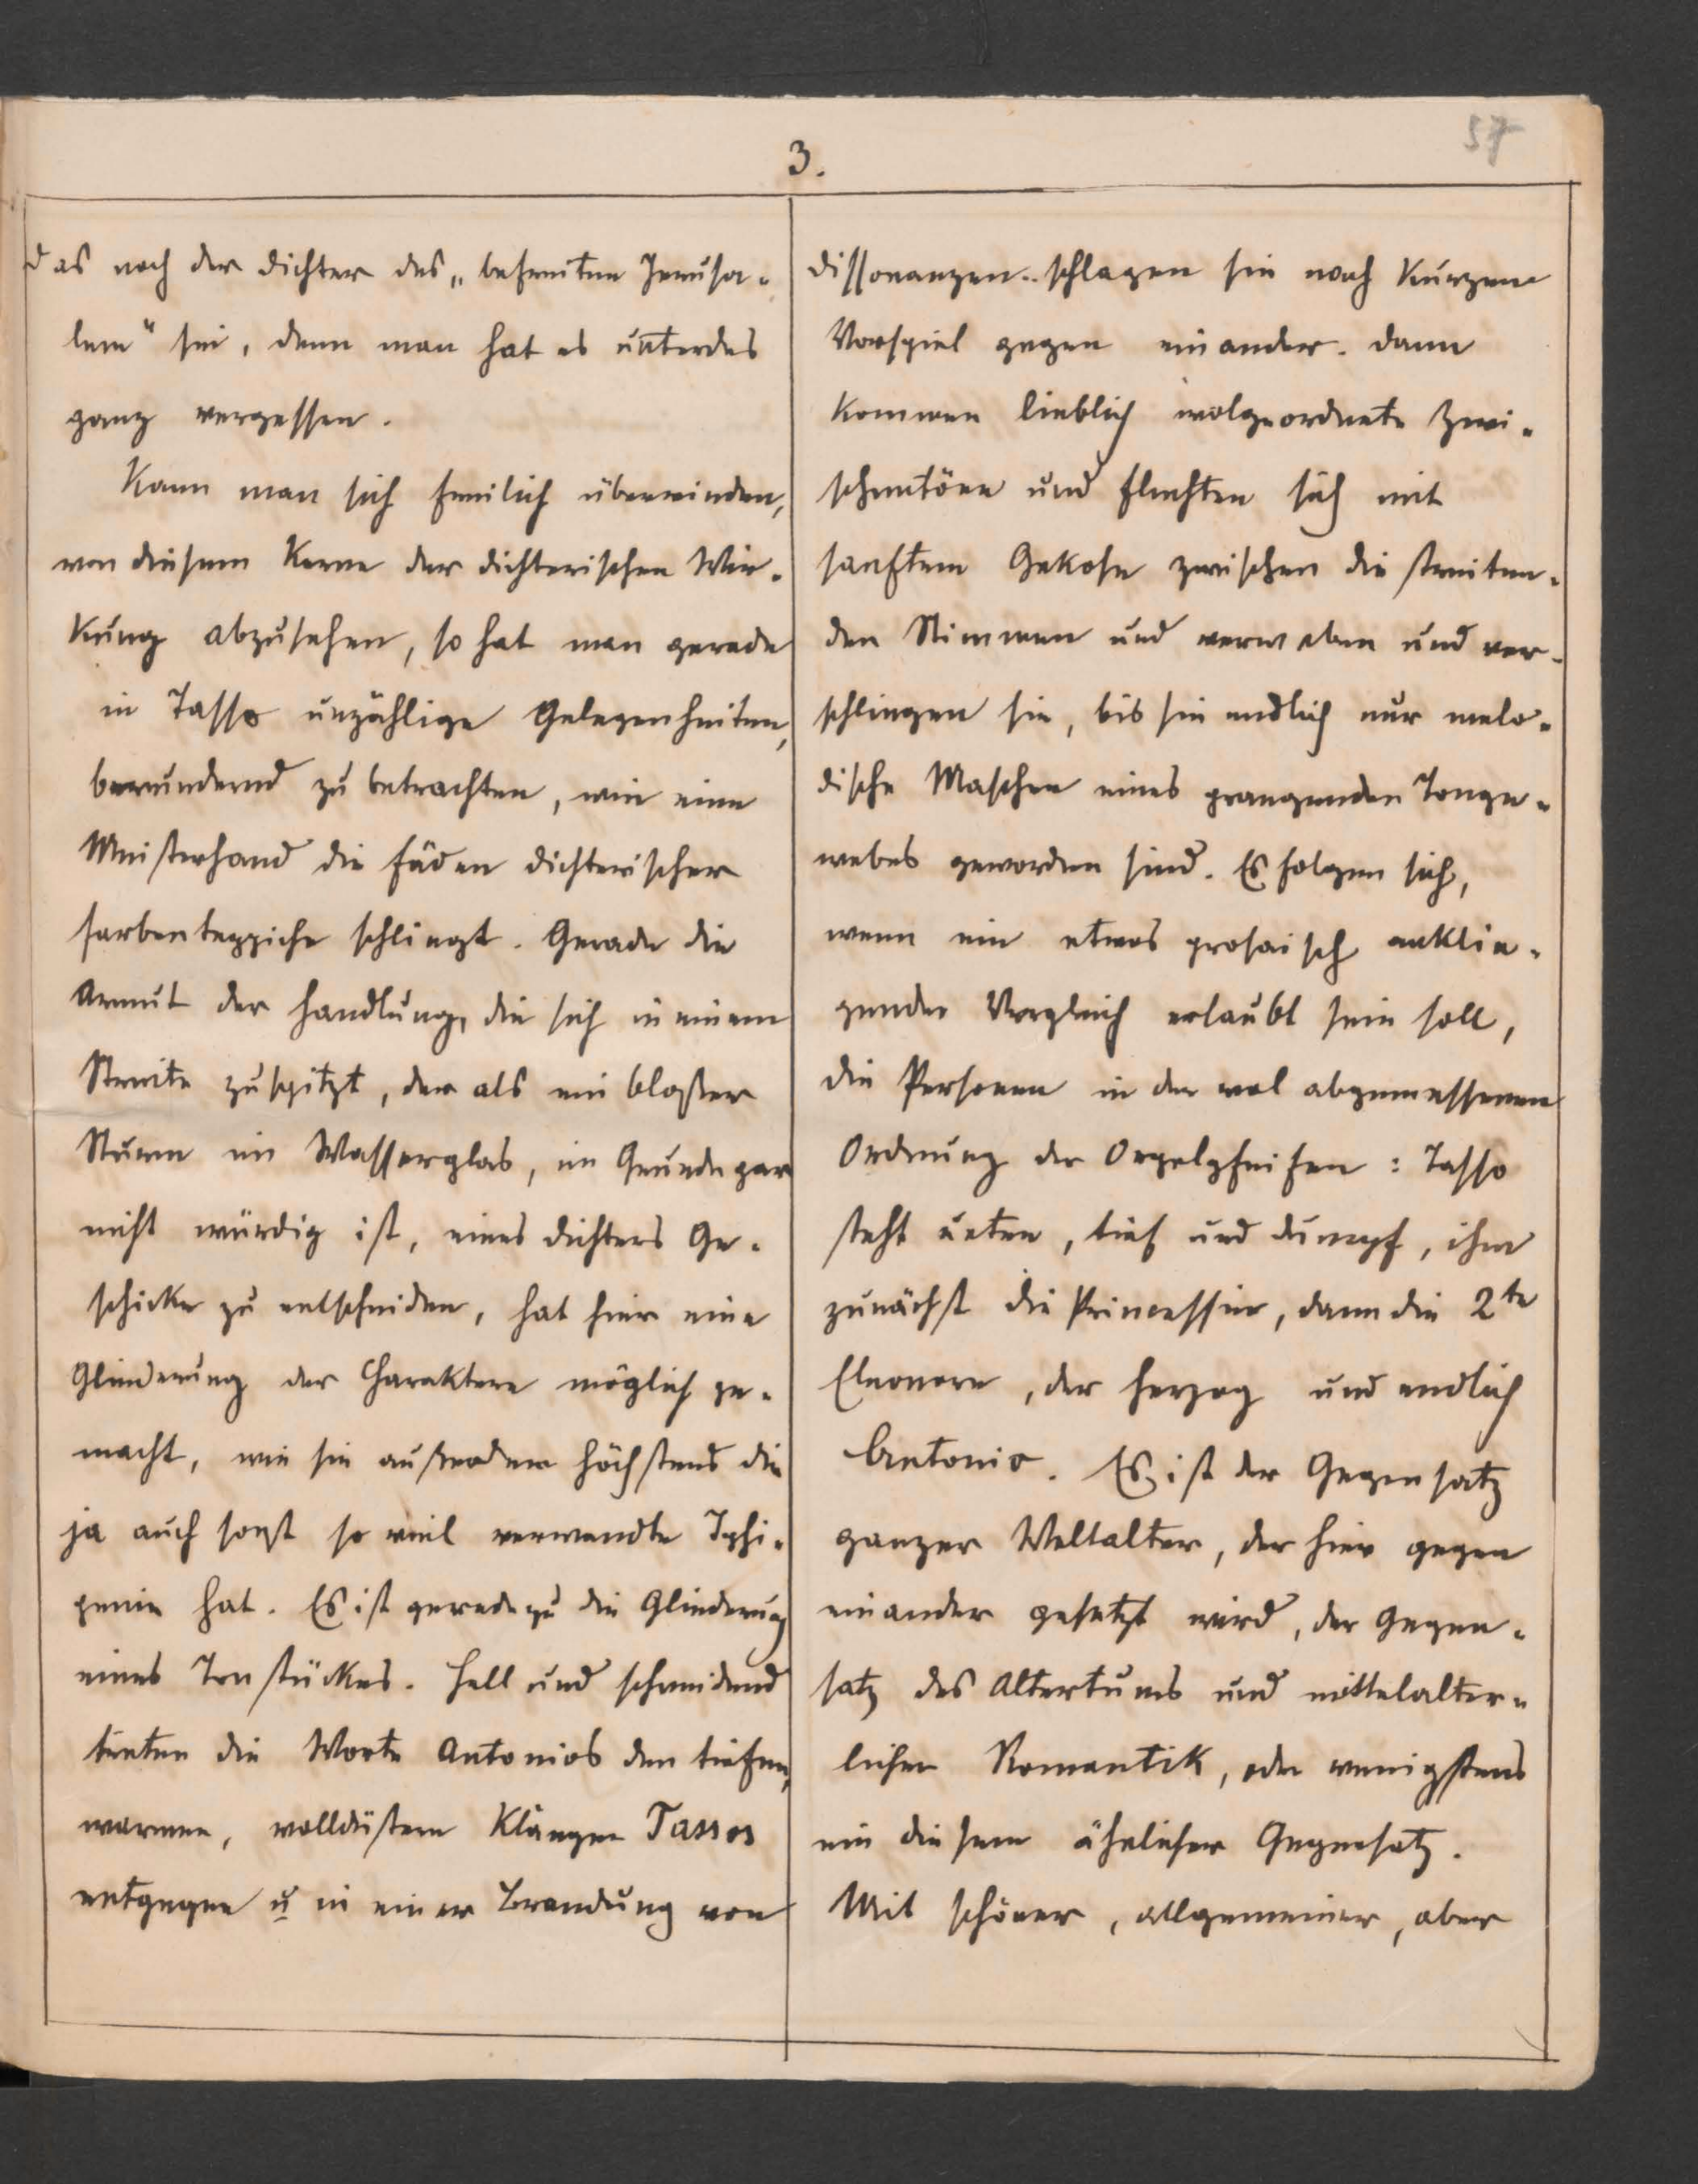 57
3.
das noch der Dichter des „befreiten Jerusa-
lem" sei, denn man hat es unterdes
ganz vergessen.
Kann man sich freilich überwinden,
von diesem Kerne der dichterischen Wir-
kung abzusehen, so hat man gerade
in Tasso unzählige Gelegenheiten,
bewundernd zu betrachten, wie eine
Meisterhand die Fäden dichterischer
Farbenteppiche schlingt. Gerade die
Armut der Handlung, die sich in einem
Streite zuspitzt, der als ein bloßer
Sturm im Wasserglas, im Grunde gar
nicht würdig ist, eines Dichters Ge-
schicke zu entscheiden, hat hier eine
Gliederung der Charaktere möglich ge-
macht, wie sie außerdem höchstens die
ja auch sonst so viel verwandte Iphi-
genie hat. Es ist geradezu die Gliederung
eines Tonstückes. Hell und schneidend
treten die Worte Antonios den tiefen,
warmen, volldüstern Klängen Tassos
entgegen u in einer Brandung von
Dissonanzen schlagen sie nach kurzem
Vorspiel gegen einander. Dann
kommen lieblich wolgeordnete Zwi-
schentöne und flechten sich mit
sanftem Gekose zwischen die streiten-
den Stimmen und verweben und ver-
schlingen sie, bis sie endlich nur melo-
dische Maschen eines prangenden Tonge-
webes geworden sind. Es folgen sich,
wenn ein etwas prosaisch anklin-
gender Vergleich erlaubt sein soll,
die Personen in der wol abgemessenen
Ordnung der Orgelpfeifen: Tasso
steht unten, tief und dumpf, ihm
zunächst die Princessin, dann die 2te
Eleonore, der Herzog und endlich
Antonio. Es ist der Gegensatz
ganzer Weltalter, der hier gegen
einander gesetzt wird, der Gegen-
satz des Altertums und mittelalter-
licher Romantik, oder wenigstens
ein diesem ähnlicher Gegensatz.
Mit schöner, allgemeiner, aber